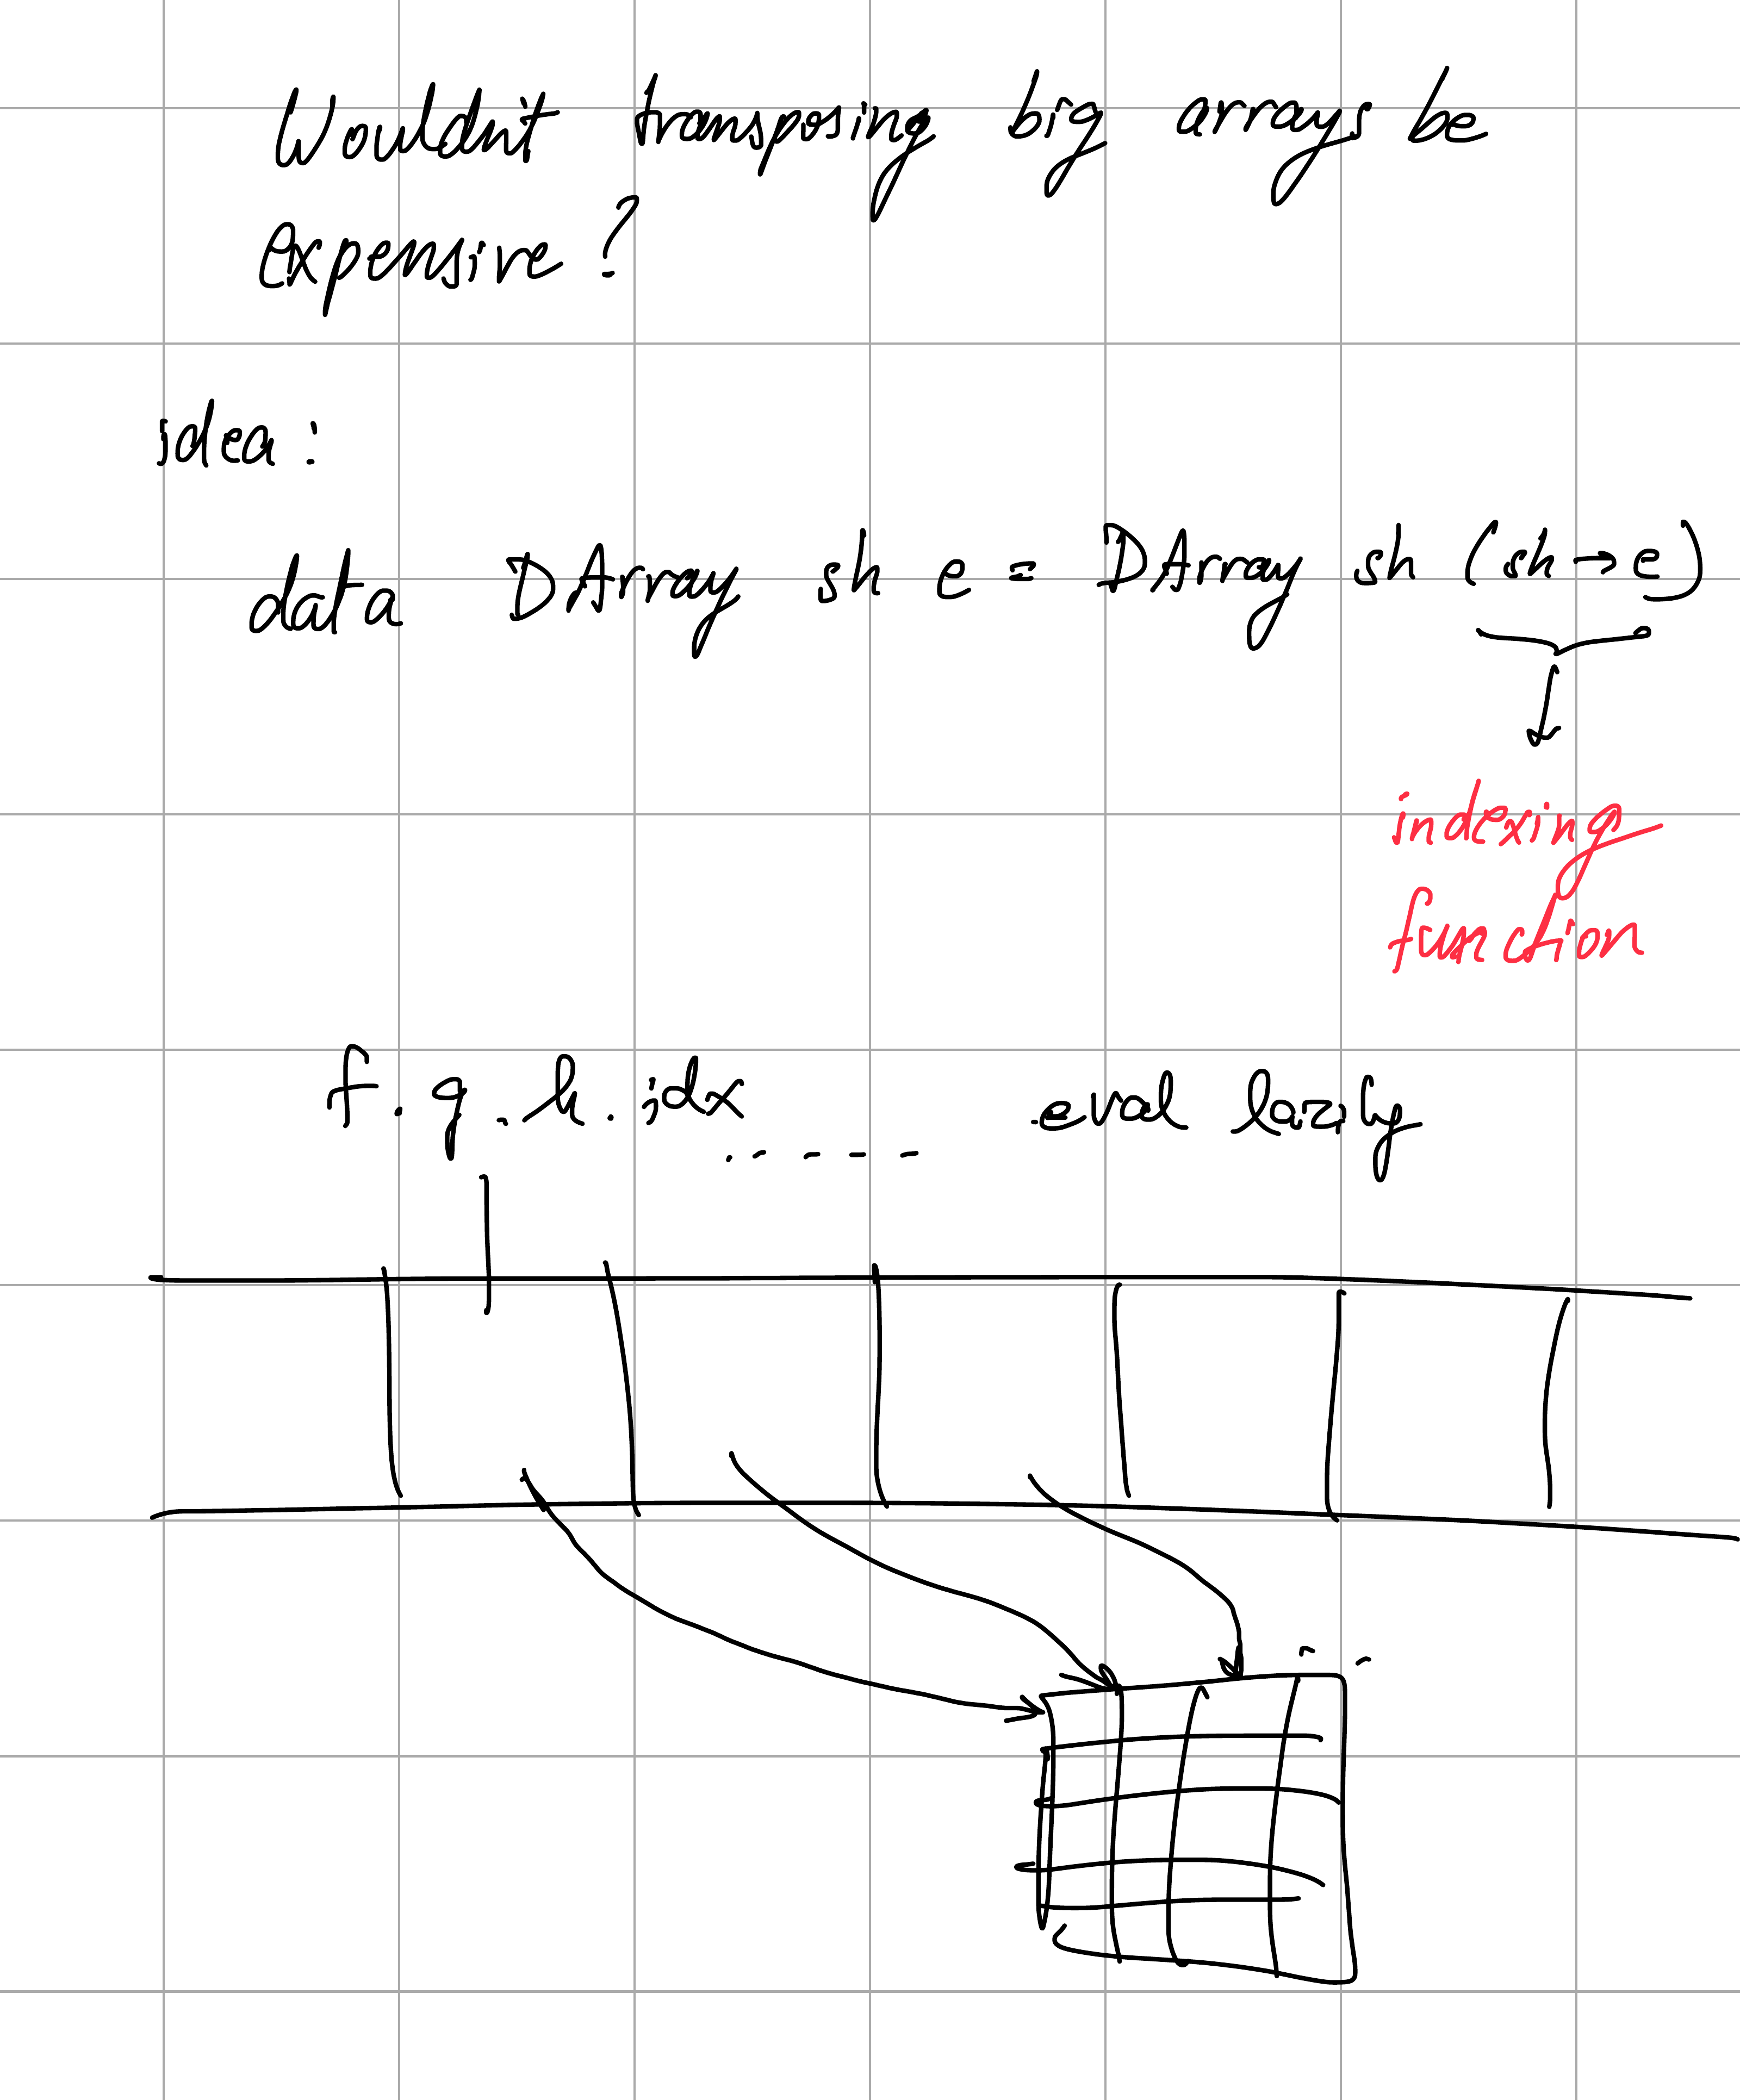 Wouldn't transposing big arrays be
expensive?
idea:
data DArray sh e = DArray sh (sh → e)
indexing
function
f . g . h . idx ..... eval lazily